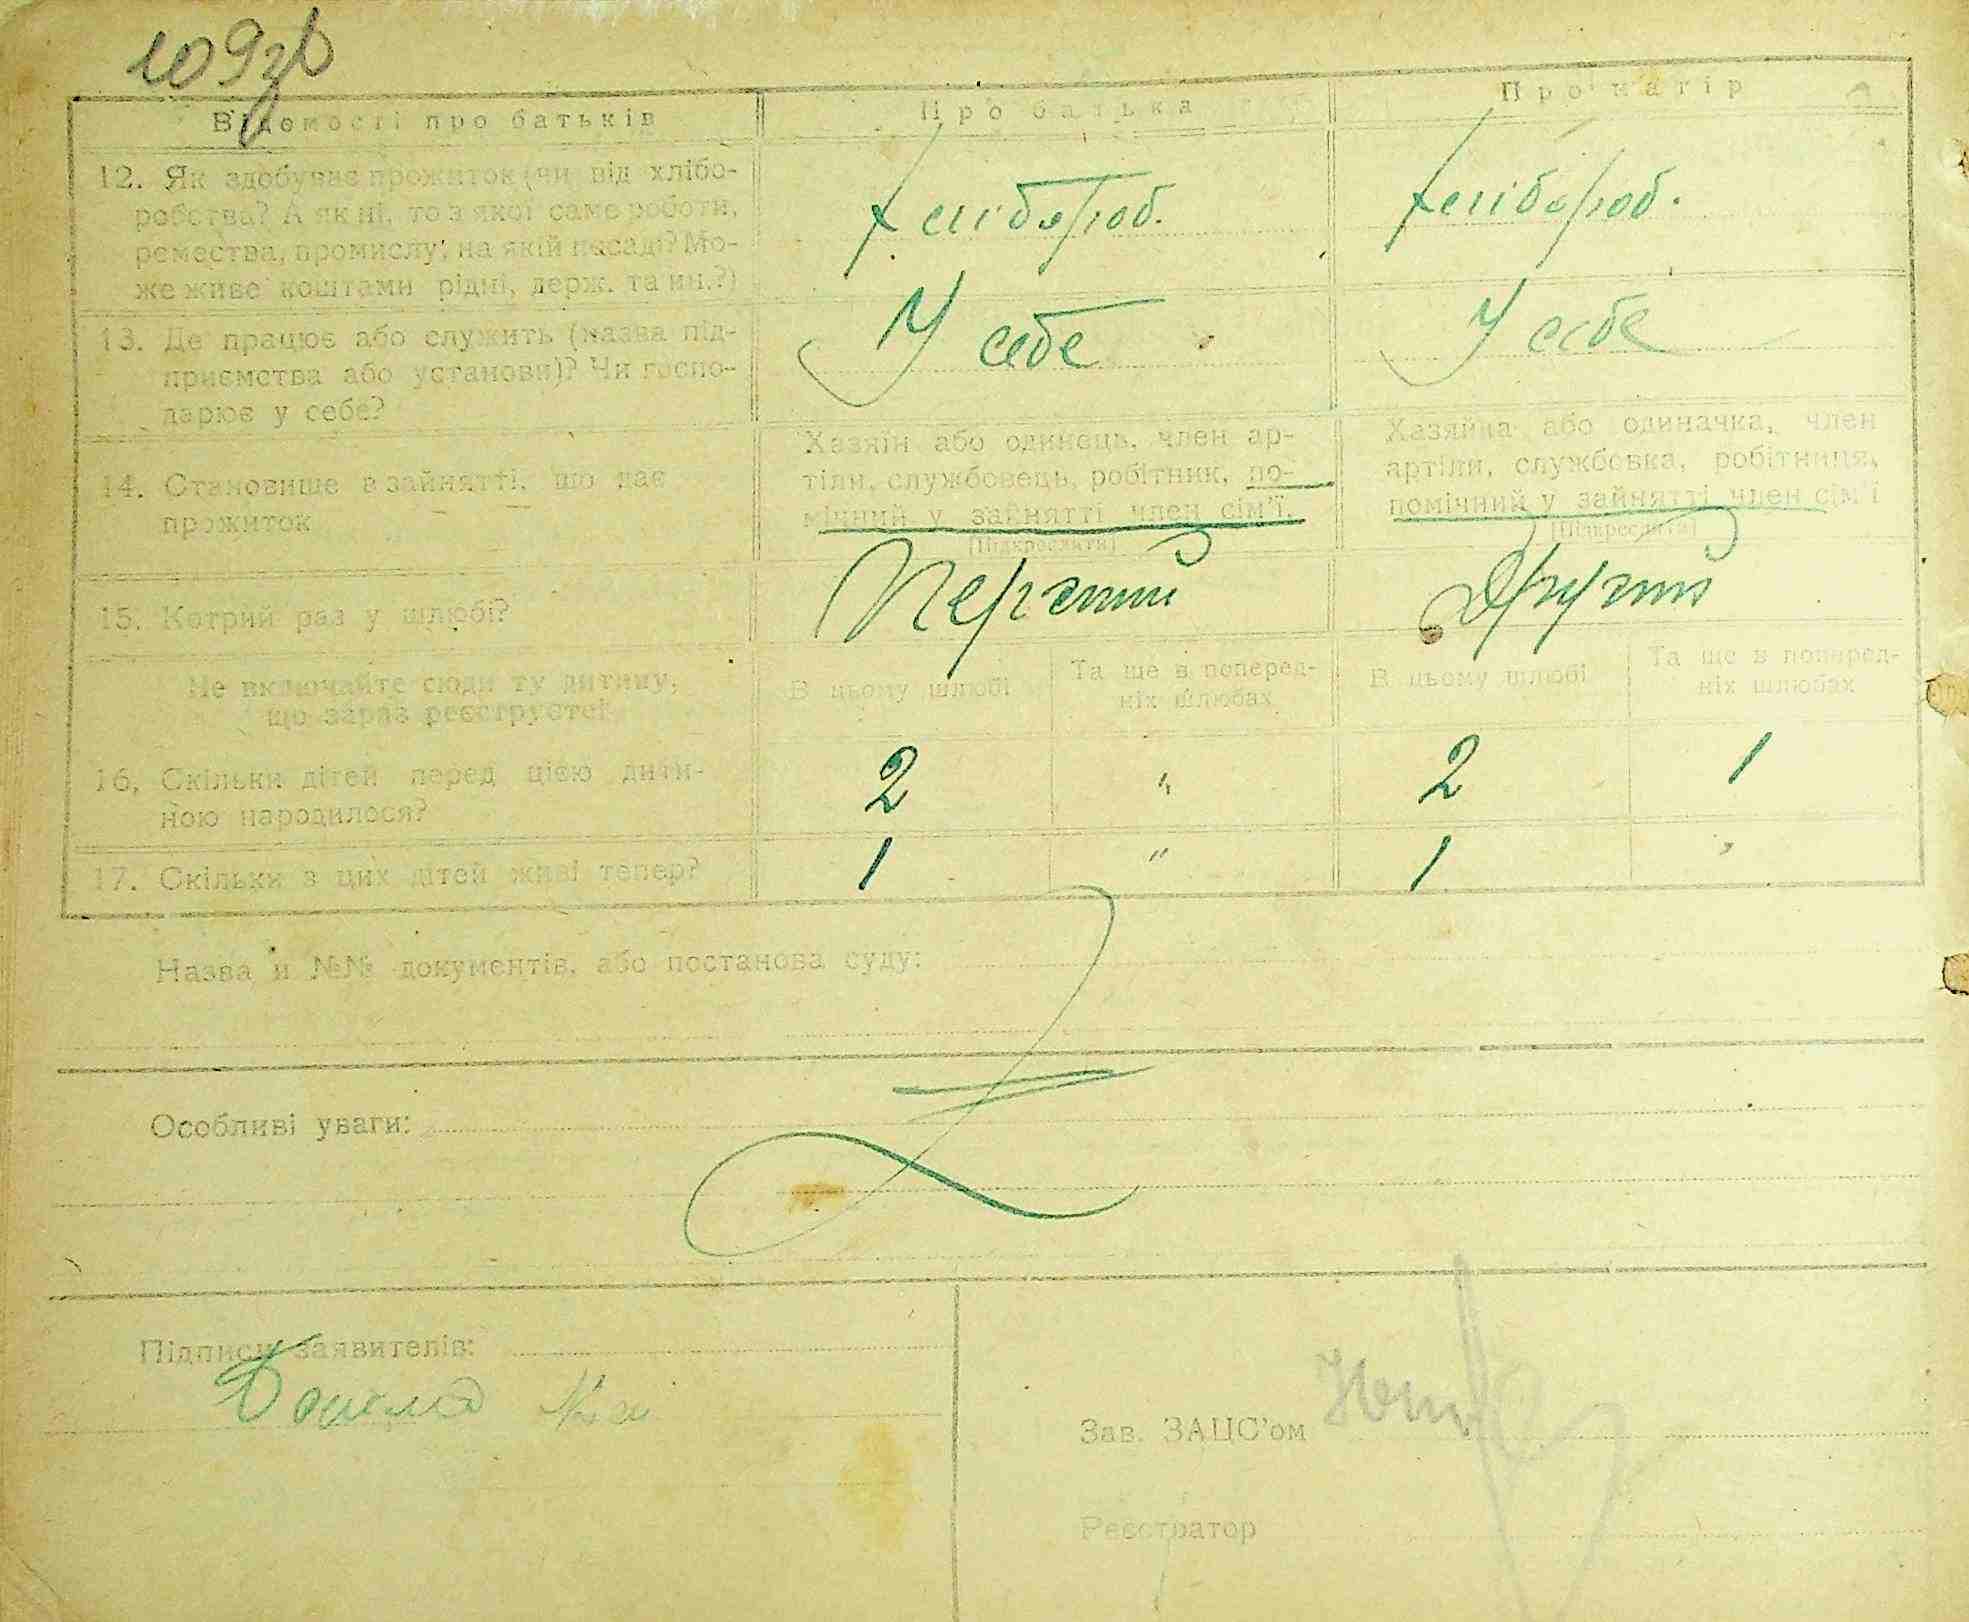 109 зв
Відомості про батьків
Про батька
Про матір
12. Як здобуває прожиток (чи від хлібо-
робства? А як ні, то з якої саме роботи,
ремества, промислу; на якій посаді? Мо-
же живе коштами рідні, держ. та ин.?)
хлібороб.
хлібороб.
13. Де працює або служить (назва під-
приємства або установи)? Чи госпо-
дарює у себе?
У себе
У себе
14. Становище в зайнятті, що дає
прожиток
Хазяїн або одинець, член ар-
тіли, службовець, робітник, по-
мічний у зайнятті член сім'ї.
[Підкреслити]
Хазяйка або одиначка, член
артіли, службовка, робітниця,
помічний у зайнятті член сім'ї
[Підкреслити]
15. Котрий раз у шлюбі?
Другий
Не включайте сюди ту дитину,
що зараз реєструєте!
В цьому шлюбі
Та ще в поперед-
ніх шлюбах
В цьому шлюбі
Та ще в поперед-
ніх шлюбах
16. Скільки дітей перед цією дити-
ною народилося?
2 " 2 1
17. Скільки з цих дітей живі тепер?
1 " 1 "
Назва й №№ документів, або постанова суду:
Особливі уваги:
Підписи заявителів:
Зав. ЗАЦС'ом
Реєстратор